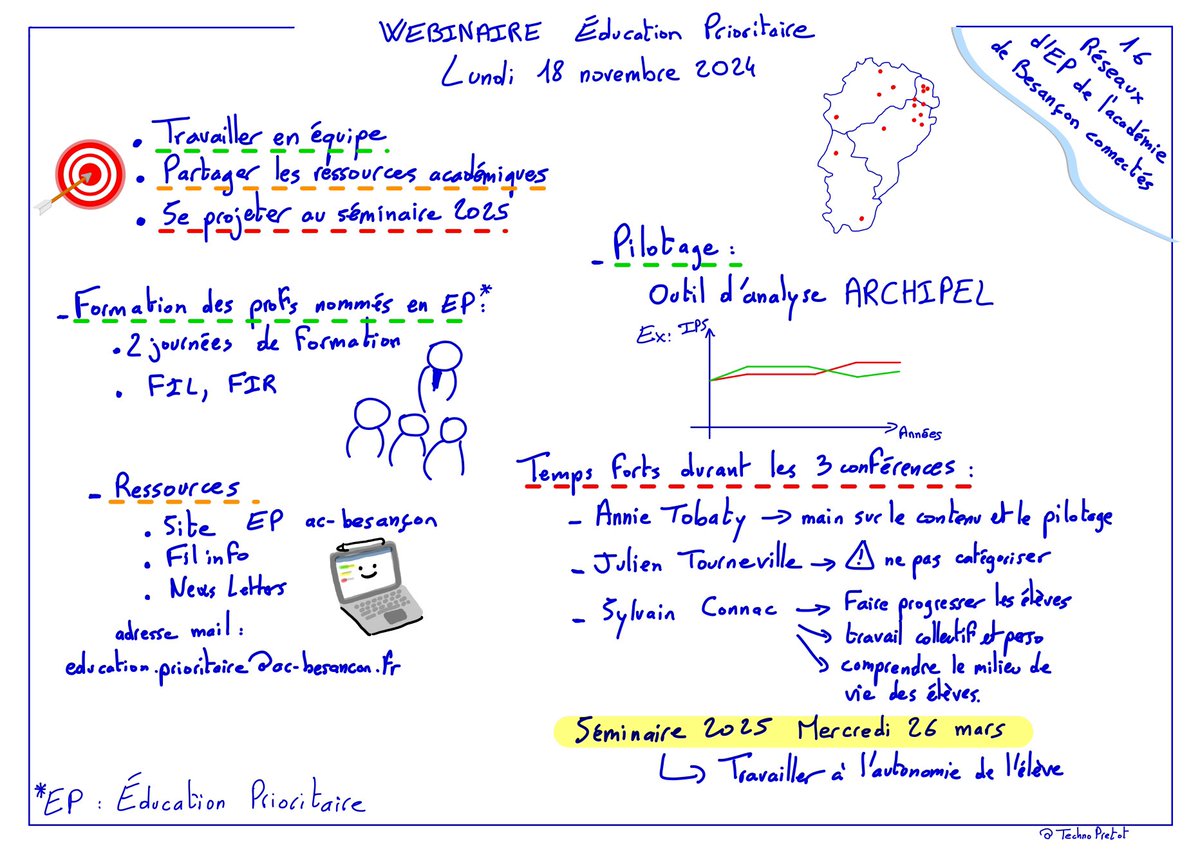 WEBINAIRE Éducation Prioritaire
Lundi 18 novembre 2024
16
Réseaux
d'EP de l'académie
de Besançon connectés
• Travailler en équipe
• Partager les ressources académiques
• Se projeter au séminaire 2025
- Formation des profs nommés en EP*:
• 2 journées de formation
• FIL, FIR
- Ressources
• Site EP ac-besançon
• Fil info
• News Letters
adresse mail :
education.prioritaire@ac-besancon.fr
- Pilotage :
Outil d'analyse ARCHIPEL
Ex: IPS
Années
Temps forts durant les 3 conférences :
- Annie Tobaty → main sur le contenu et le pilotage
- Julien Tourneville → ⚠ ne pas catégoriser
- Sylvain Connac → Faire progresser les élèves
→ travail collectif et perso
→ comprendre le milieu de
vie des élèves.
Séminaire 2025 Mercredi 26 mars
↳ Travailler à l'autonomie de l'élève
*EP : Éducation Prioritaire
@TechnoPretot